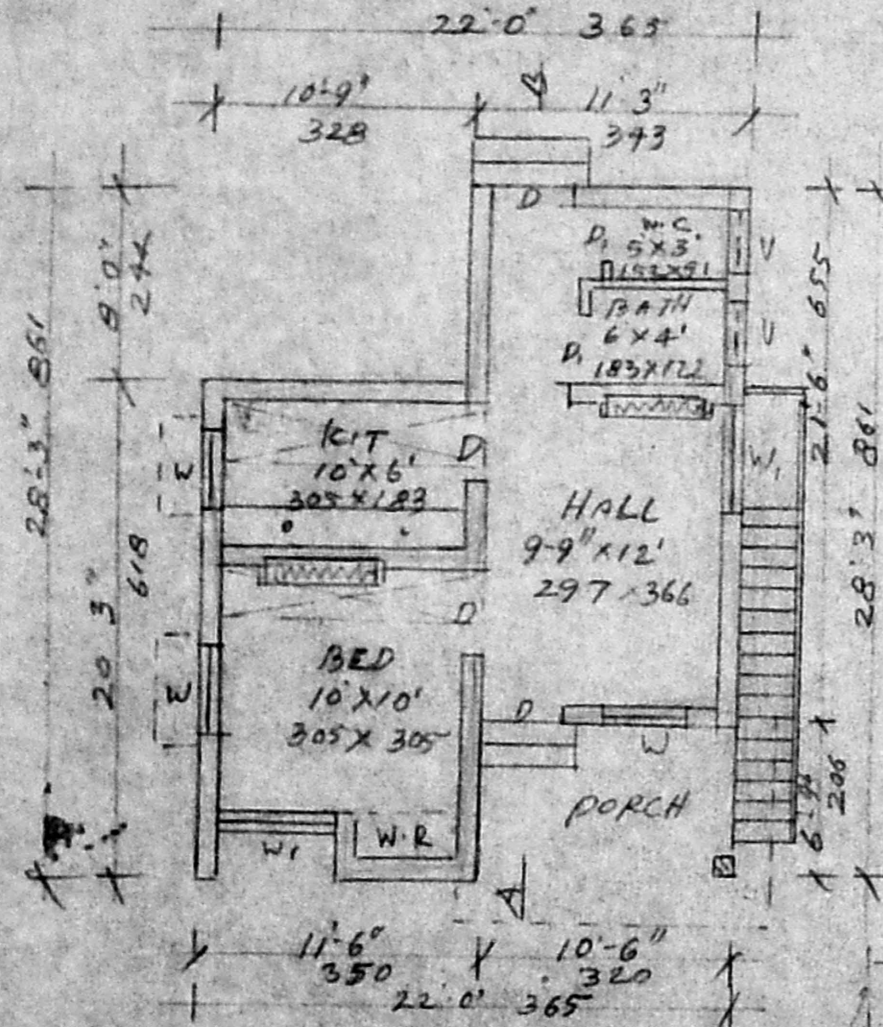 22'-0" 365
10'-9"
328
A
11'-3"
343
28'-3" 861
8'0"
244
D
W.C.
D1 5'X3'
152X91
V
BATH
6'X4'
D1 183X122
V
21'-6" 655
28'3" 861
KIT
10'X6'
305X183
D
W
W1
HALL
9-9"X12'
297 366
20'3"
618
D
BED
10'X10'
305X305
W
D
W
PORCH
6'-9"
206
W1
W.R
A
11'-6"
350
10'-6"
320
22'0' 365